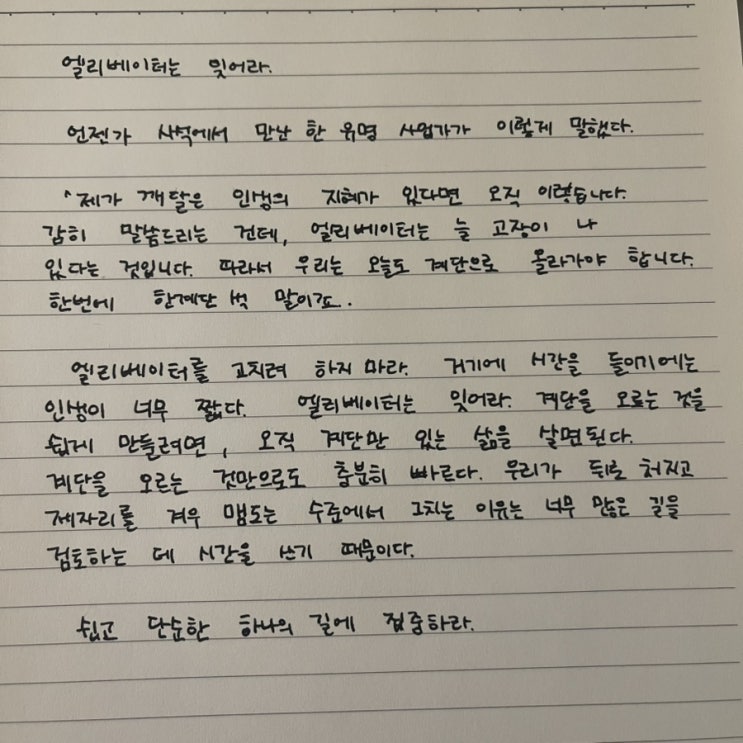 엘리베이터는 잊어라.
언젠가 사석에서 만난 한 유명 사업가가 이렇게 말했다.
"제가 깨달은 인생의 지혜가 있다면 오직 이렇습니다.
감히 말씀드리는 건데, 엘리베이터는 늘 고장이 나
있다는 것입니다. 따라서 우리는 오늘도 계단으로 올라가야 합니다.
한번에 한계단 씩 말이죠.
엘리베이터를 고치려 하지 마라. 거기에 시간을 들이기에는
인생이 너무 짧다. 엘리베이터는 잊어라. 계단을 오르는 것을
쉽게 만들려면, 오직 계단만 있는 삶을 살면된다.
계단을 오르는 것만으로도 충분히 빠르다. 우리가 뒤로 처지고
제자리를 겨우 맴도는 수준에서 그치는 이유는 너무 많은 길을
검토하는 데 시간을 쓰기 때문이다.
쉽고 단순한 하나의 길에 집중하라.